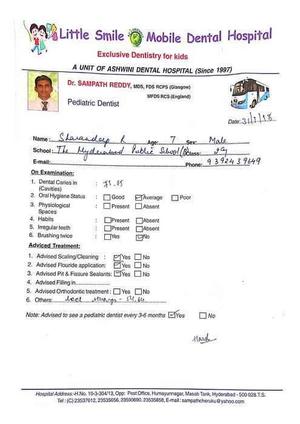 Little Smile Mobile Dental Hospital
Exclusive Dentistry for kids
A UNIT OF ASHWINI DENTAL HOSPITAL (Since 1997)
Dr. SAMPATH REDDY, MDS, FDS RCPS (Glasgow)
MFDS RCS (England)
Pediatric Dentist
Date:
Name: Age: 7 Sex: Male
School: The Hyderabad Public School
E-mail: Phone:
On Examination:
1. Dental Caries in (Cavities) :
2. Oral Hygiene Status : Good Average Poor
3. Physiological Spaces : Present Absent
4. Habits : Present Absent
5. Irregular teeth : Present Absent
6. Brushing twice : Yes No
Adviced Treatment:
1. Advised Scaling/Cleaning : Yes No
2. Advised Flouride application: Yes No
3. Advised Pit & Fissure Sealants: Yes No
4. Advised Filling in
5. Advised Orthodontic treatment : Yes No
6. Others:
Note: Advised to see a pediatric dentist every 3-6 months Yes No
Hospital Address:-H.No. 10-3-304/13, Opp: Post Office, Humayunnagar, Masab Tank, Hyderabad - 500 028 T.S.
Tel : (C) 23537612, 23535656, 23590690, 23535858, E-mail : sampathcheruku@yahoo.com